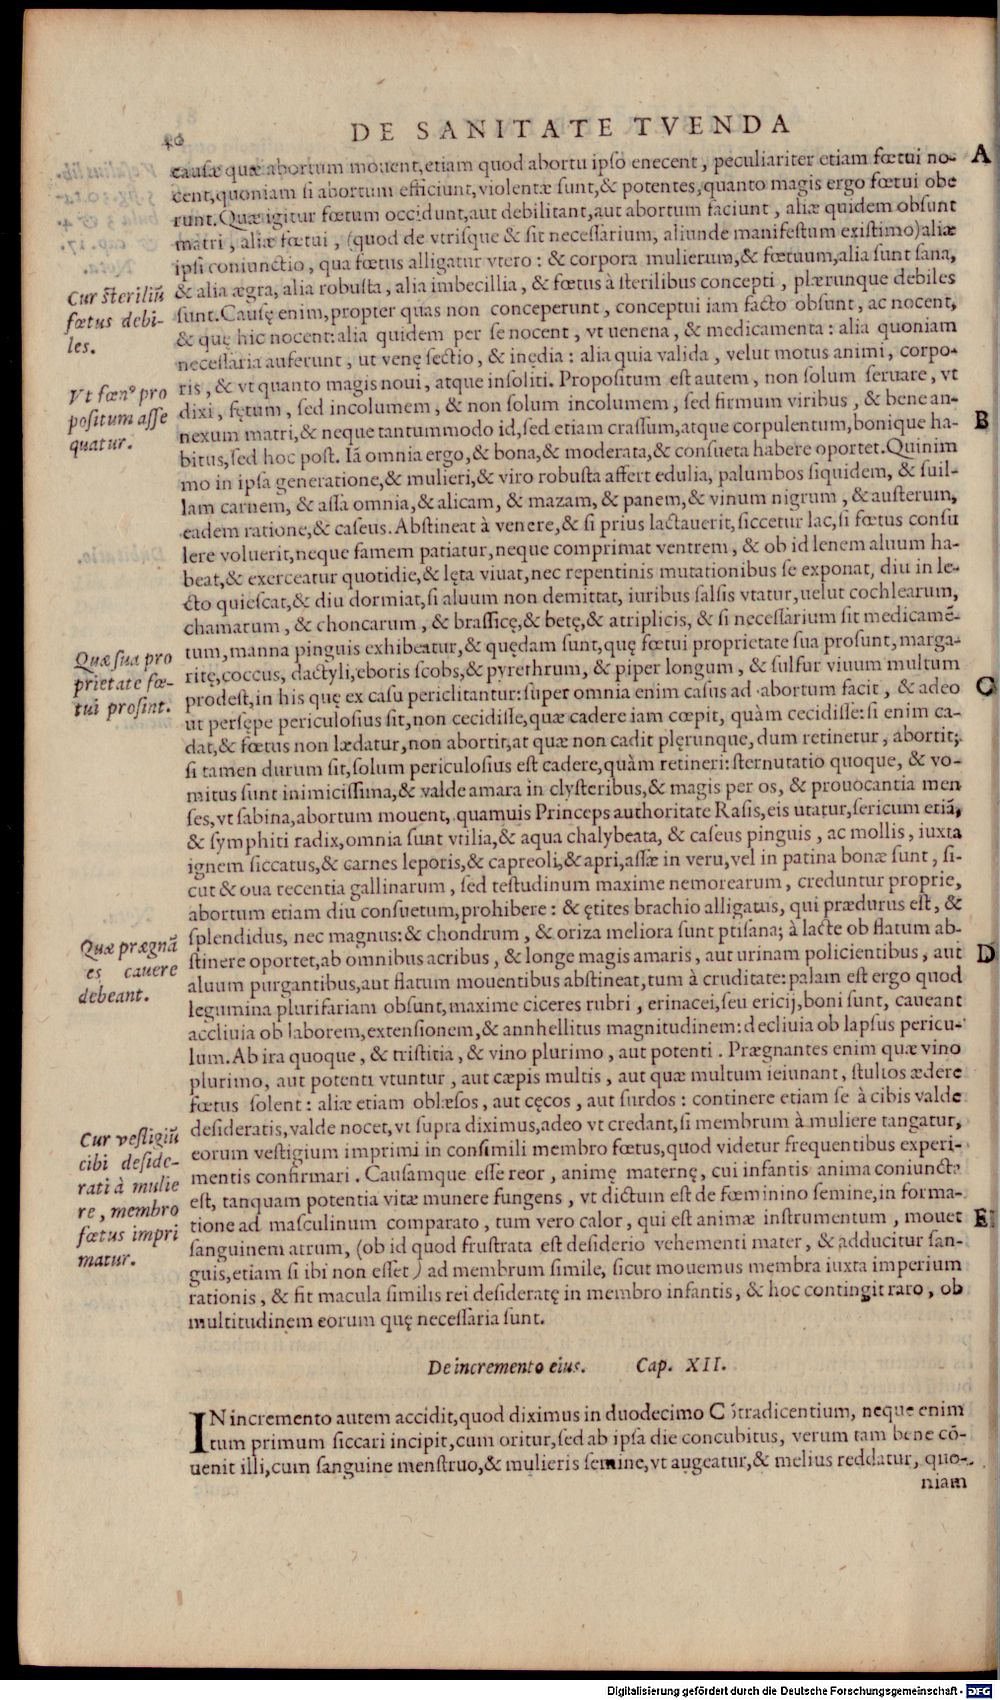 40
DE SANITATE TVENDA
causæ quæ abortum mouent, etiam quod abortu ipso enecent, peculiariter etiam fœtui no- A
cent, quoniam si abortum efficiunt, violentæ sunt, & potentes, quanto magis ergo fœtui obe
runt. Quæ igitur fœtum occidunt, aut debilitant, aut abortum faciunt, aliæ quidem obsunt
matri, aliæ fœtui, (quod de vtrisque & sit necessarium, aliunde manifestum existimo) aliæ
ipsi coniunctio, qua fœtus alligatur vtero: & corpora mulierum, & fœtuum, alia sunt sana,
& alia ægra, alia robusta, alia imbecillia, & fœtus à sterilibus concepti, plærunque debiles
sunt. Causę enim, propter quas non conceperunt, conceptui iam facto obsunt, ac nocent,
& quę hic nocent: alia quidem per se nocent, vt uenena, & medicamenta: alia quoniam
necessaria auferunt, ut venę sectio, & inędia: alia quia valida, velut motus animi, corpo-
ris, & vt quanto magis noui, atque insoliti. Propositum est autem, non solum seruare, vt
dixi, fętum, sed incolumem, & non solum incolumem, sed firmum viribus, & bene an-
nexum matri, & neque tantummodo id, sed etiam crassum, atque corpulentum, bonique ha- B
bitus, sed hoc post. Iã omnia ergo, & bona, & moderata, & consueta habere oportet. Quinim
mo in ipsa generatione, & mulieri, & viro robusta affert edulia, palumbos siquidem, & suil-
lam carnem, & assa omnia, & alicam, & mazam, & panem, & vinum nigrum, & austerum,
eadem ratione, & caseus. Abstineat à venere, & si prius lactauerit, siccetur lac, si fœtus consu
lere voluerit, neque famem patiatur, neque comprimat ventrem, & ob id lenem aluum ha-
beat, & exerceatur quotidie, & lęta viuat, nec repentinis mutationibus se exponat, diu in le-
cto quiescat, & diu dormiat, si aluum non demittat, iuribus salsis vtatur, uelut cochlearum,
chamarum, & choncarum, & brassicę, & betę, & atriplicis, & si necessarium sit medicamē-
tum, manna pinguis exhibeatur, & quędam sunt, quę fœtui proprietate sua prosunt, marga-
ritę, coccus, dactyli, eboris scobs, & pyrethrum, & piper longum, & sulfur viuum multum
prodest, in his quę ex casu periclitantur: super omnia enim casus ad abortum facit, & adeo C
ut persępe periculosius sit, non cecidisse, quæ cadere iam cœpit, quàm cecidisse: si enim ca-
dat, & fœtus non lædatur, non abortit, at quæ non cadit plęrunque, dum retinetur, abortit;
si tamen durum sit, solum periculosius est cadere, quàm retineri: sternutatio quoque, & vo-
mitus sunt inimicissima, & valde amara in clysteribus, & magis per os, & prouocantia men
ses, vt sabina, abortum mouent, quamuis Princeps authoritate Rasis, eis utatur, sericum etiã,
& symphiti radix, omnia sunt vtilia, & aqua chalybeata, & caseus pinguis, ac mollis, iuxta
ignem siccatus, & carnes leporis, & capreoli, & apri, assæ in veru, vel in patina bonæ sunt, si-
cut & oua recentia gallinarum, sed testudinum maxime nemorearum, creduntur proprie,
abortum etiam diu consuetum, prohibere: & ętites brachio alligatus, qui prædurus est, &
splendidus, nec magnus: & chondrum, & oriza meliora sunt ptisana; à lacte ob flatum ab-
stinere oportet, ab omnibus acribus, & longe magis amaris, aut urinam policientibus, aut D
aluum purgantibus, aut flatum mouentibus abstineat, tum à cruditate: palam est ergo quod
legumina plurifariam obsunt, maxime ciceres rubri, erinacei, seu ericij, boni sunt, caueant
accliuia ob laborem, extensionem, & annhellitus magnitudinem: decliuia ob lapsus pericu-
lum. Ab ira quoque, & tristitia, & vino plurimo, aut potenti. Prægnantes enim quæ vino
plurimo, aut potenti vtuntur, aut cæpis multis, aut quæ multum ieiunant, stultos ædere
fœtus solent: aliæ etiam oblæsos, aut cęcos, aut surdos: continere etiam se à cibis valde
desideratis, valde nocet, vt supra diximus, adeo vt credant, si membrum à muliere tangatur,
eorum vestigium imprimi in consimili membro fœtus, quod videtur frequentibus experi-
mentis confirmari. Causamque esse reor, animę maternę, cui infantis anima coniuncta
est, tanquam potentia vitæ munere fungens, vt dictum est de fœminino semine, in forma-
tione ad masculinum comparato, tum vero calor, qui est animæ instrumentum, mouet E
sanguinem atrum, (ob id quod frustrata est desiderio vehementi mater, & adducitur san-
guis, etiam si ibi non esset) ad membrum simile, sicut mouemus membra iuxta imperium
rationis, & fit macula similis rei desideratę in membro infantis, & hoc contingit raro, ob
multitudinem eorum quę necessaria sunt.
Cur steriliũ
fœtus debi-
les.
Vt fœn⁹ pro
positum asse
quatur.
Quæ sua pro
prietate fœ-
tui prosint.
Quæ prægnã
es cauere
debeant.
Cur vestigiũ
cibi deside-
rati à mulie
re, membro
fœtus impri
matur.
De incremento eius. Cap. XII.
IN incremento autem accidit, quod diximus in duodecimo Cõtradicentium, neque enim
tum primum siccari incipit, cum oritur, sed ab ipsa die concubitus, verum tam bene cõ-
uenit illi, cum sanguine menstruo, & mulieris semine, vt augeatur, & melius reddatur, quo-
niam
Digitalisierung gefördert durch die Deutsche Forschungsgemeinschaft - DFG